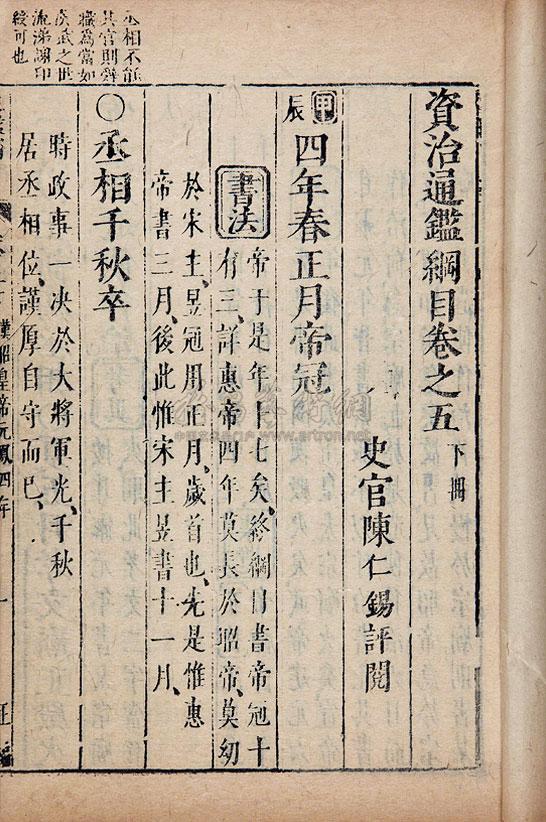 資治通鑑綱目卷之五 下冊
史官陳仁錫評閱
甲辰 四年春正月帝冠
書法
帝于是年十七矣、終綱目書帝冠十
有三、詳惠帝四年莫長於昭帝、莫幼
於宋主、昱冠用正月、歲首也、先是惟惠
帝書三月、後此惟宋主昱書十一月、
○丞相千秋卒
時政事一決於大將軍光、千秋
居丞相位、謹厚自守而已、
漢昭皇帝元鳳四年 一 正編
丞相不能
其官則辭
職為當如
武之世
流涕謝印
綬可也
www.artron.net